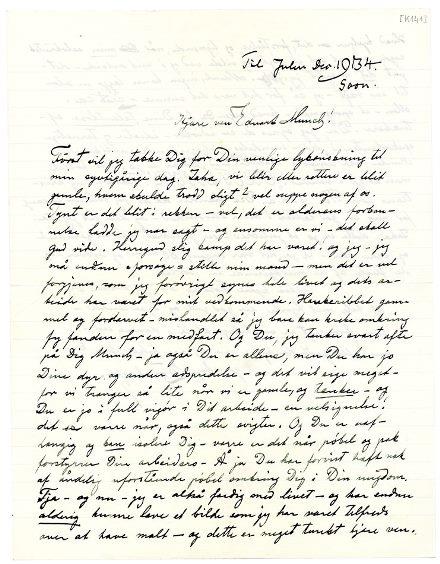 [K1413]
Til Julen Dec. 1934.
Soon.
Kjære ven Edvard Munch!
Først vil jeg takke Dig for Din venlige lykønskning til
min syvtiårige dag. Jaha, vi blir eller rettere er blit
gamle, hvem skulde trodd sligt? vel neppe nogen af os.
Tynt er det blit i rekken – vel, det er alderens forban-
nelse hadde jeg nær sagt – og ensomme er vi – det skall
gud vide. Herregud slig kamp det har været, og jeg – jeg
må endnu forsøge stelle min mand – men det er vel
forgjæves, som jeg forøvrigt synes hele livet og dets ar-
beide har været for mit vedkommende.
mel og fordærvet – mishandlet så jeg bare kan krek omkring
for en medfart. Og Du, jeg tenker svært ofte
på Dig Munch – ja også Du er allene, men Du har jo
Dine dyr og anden adspredelse – og det vil sige meget –
for vi trænger så lite når vi er gamle, og tænker – og
Du er jo i full vigør i Dit arbeide – en velsignelse.
det var værre når, også dette svigter. Og Du er uaf-
hængig og kan isolere Dig – værre er det når pøbel og pak
forstyrrer Dine arbeiders – Å ja Du har forvist haft nok
af åndelig uforstående pøbel omkring Dig i Din ungdom.
Tja – og nu – jeg er altså færdig med livet – og har endnu
aldrig kunne lave et bilde som jeg har været tilfreds
over at have malt – og dette er meget tungt kjere ven.